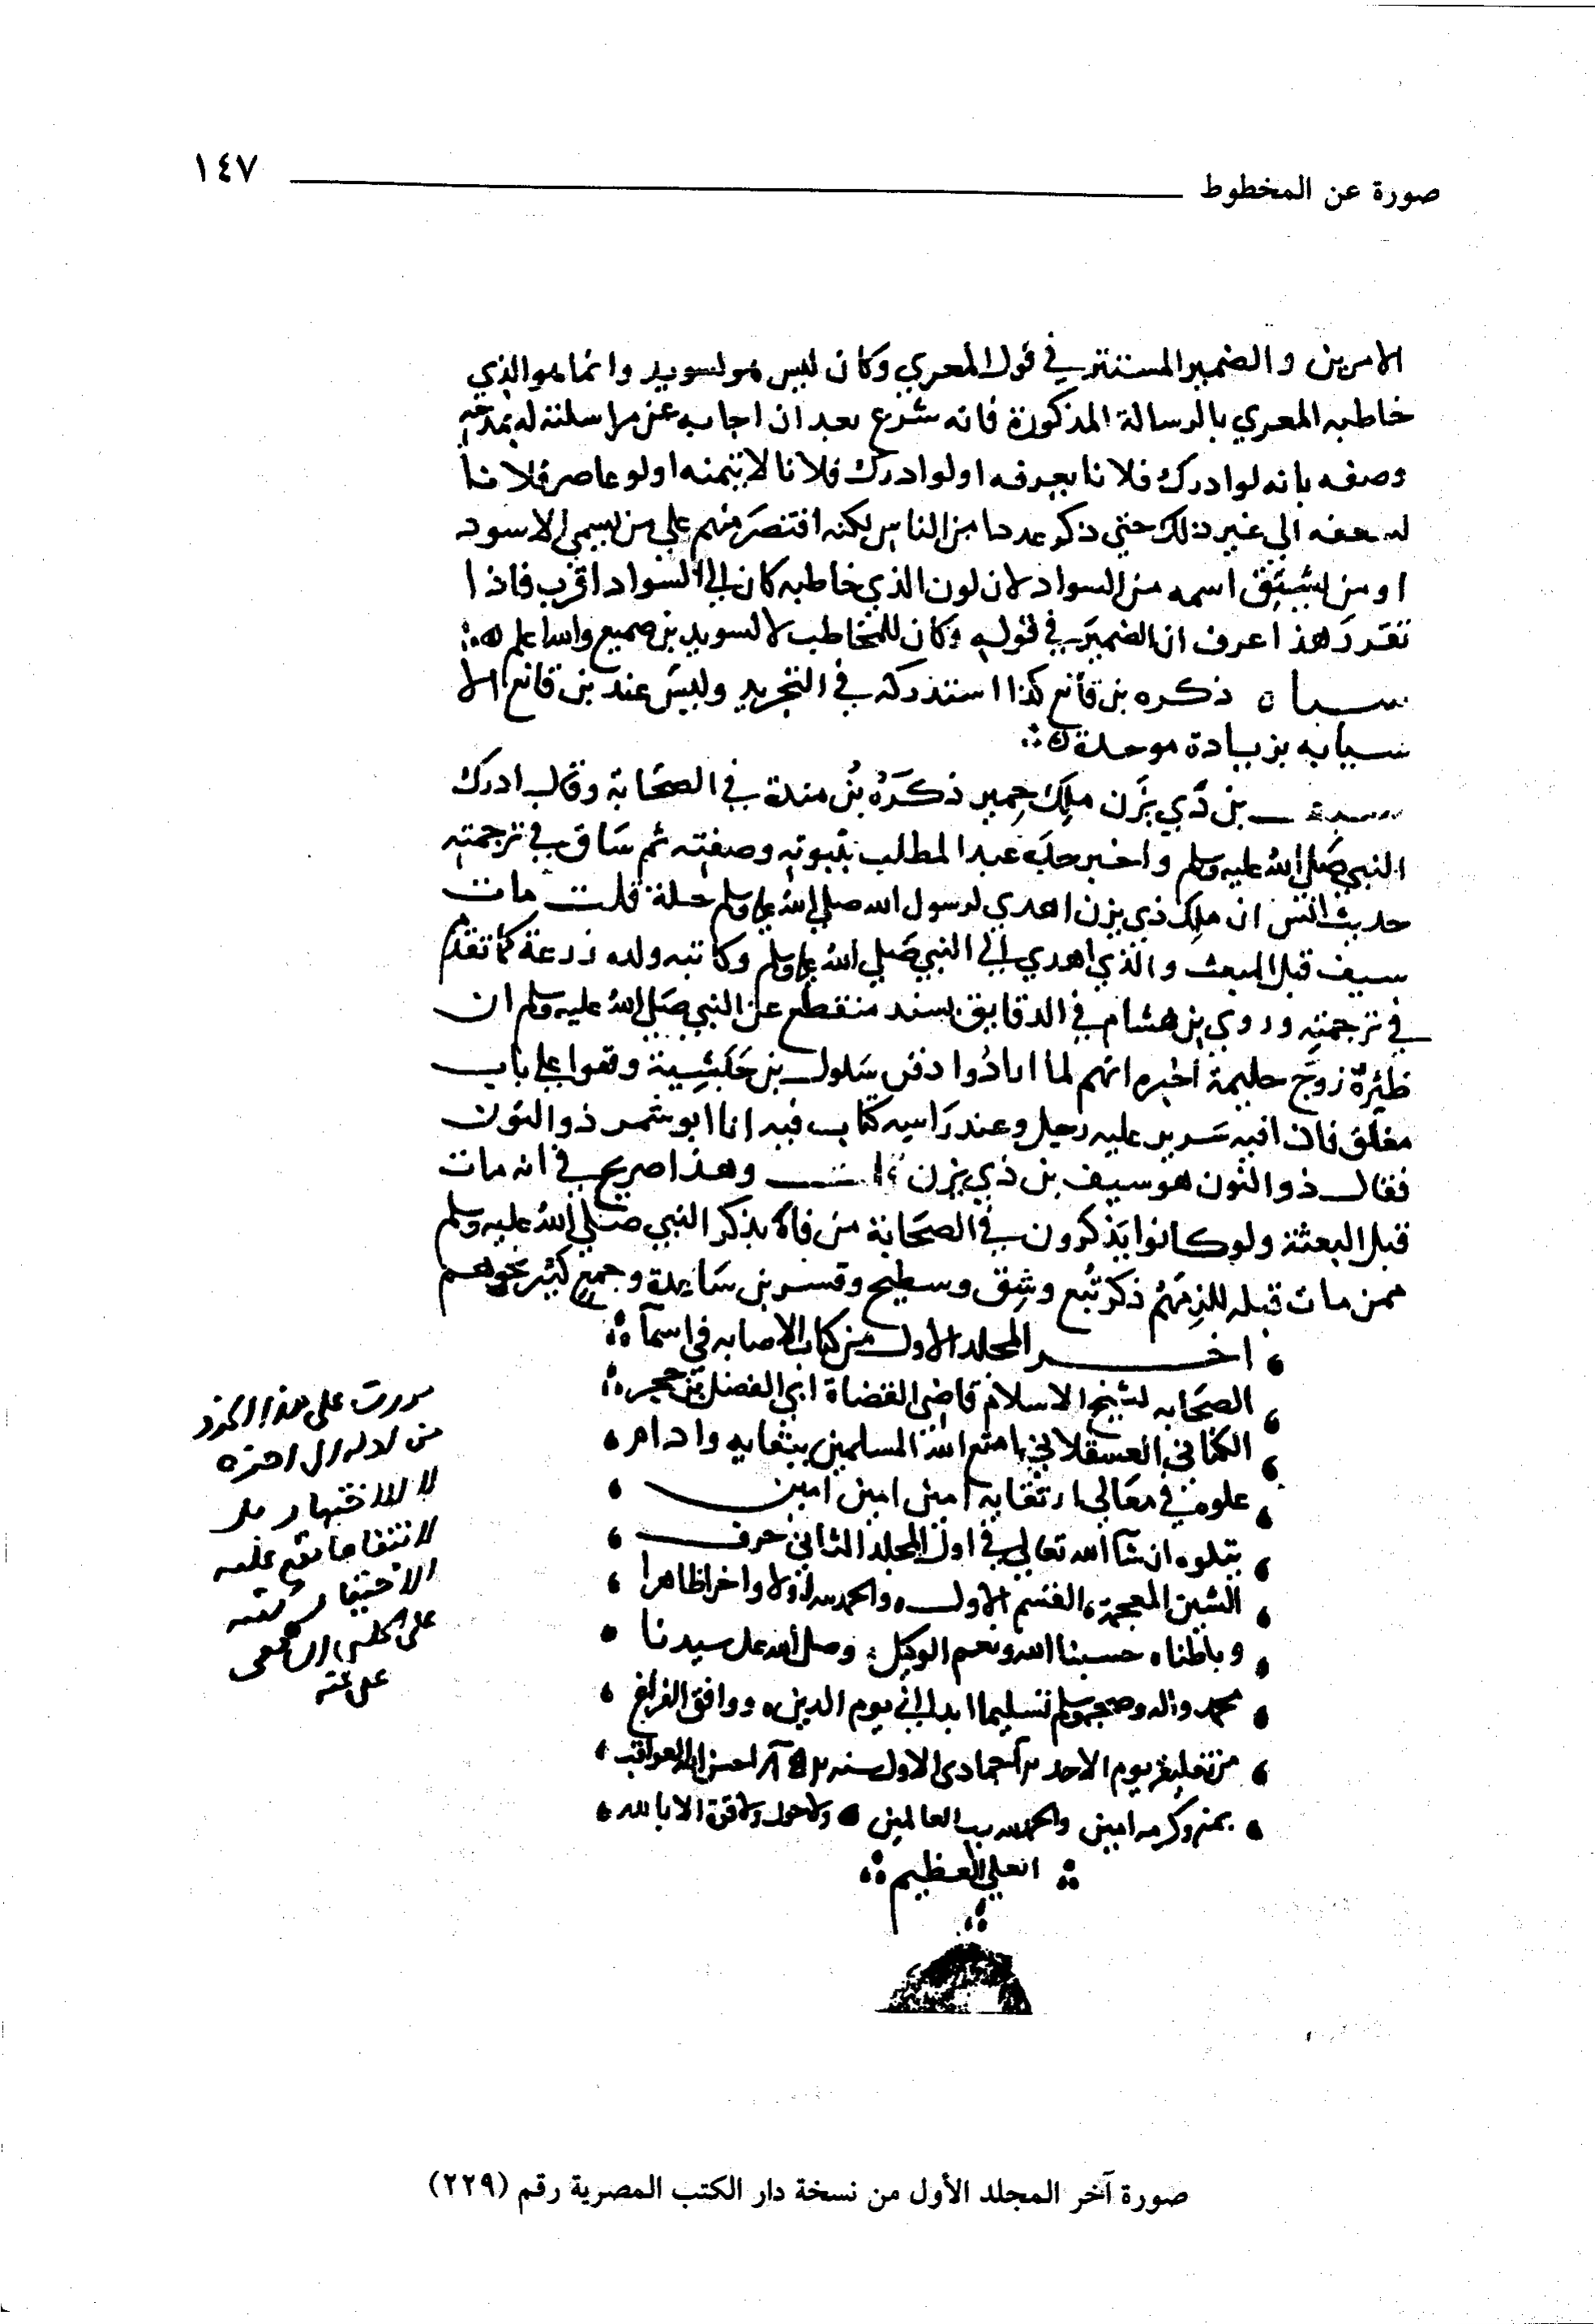 صورة عن المخطوط ١٤٧
الامرين والضمير المستتر في قول المعري وكان ليس هو لسويد وانما هو الذي
خاطبه المعري بالرسالة المذكورة فانه شرع بعد ان اجابه عن مراسلته له بمدحه
وصفه بانه لو ادرك فلانا بعرفه او لو ادرك فلانا لا تتمنه او لو عاصر فلانا
لسعفه الي غير ذلك حتي ذكر عددا من الناس لكنه اقتصر منهم علي من يسمي الاسود
او من يشتق اسمه من السواد لان لون الذي خاطبه كان الي السواد اقرب فاذا
تقرر هذا عرف ان الضمير في قوله وكان للمخاطب لا لسويد بن صميع والله اعلم
ذكره بن قانع كذا استدركه في التجريد وليس عند بن قانع الا
سيابه بزيادة موحدة
بن ذي يزن ملك حمير ذكره بن مندة في الصحابة وقال ادرك
النبي صلي الله عليه وسلم واخبر جده عبد المطلب بنبوته وصفته ثم ساق في ترجمته
حديث انس ان ملك ذي يزن اهدي لرسول الله صلي الله عليه وسلم حلة قلت مات
سيف قبل المبعث والذي اهدي الي النبي صلي الله عليه وسلم وكاتبه ولده زرعة كما تقدم
في ترجمته وروي بن هشام في الدقايق بسند منقطع عن النبي صلي الله عليه وسلم ان
ظئره زوج حليمة اخبره انهم لما ارادوا دفن سلول بن حبشية وقعوا علي باب
مغلق فاذا فيه سرير عليه رجل وعند راسه كتاب فيه انا ابو شمر ذو النون
فقال ذو النون هو سيف بن ذي يزن وهذا صريح في انه مات
قبل البعثة ولو كانوا يذكرون في الصحابة من فاه بذكر النبي صلي الله عليه وسلم
ممن مات قبله للزمهم ذكر تبع وشق وسطيح وقس بن ساعدة وجمع كثير نحوهم
اخر المجلد الاول من كتاب الاصابه في اسمآ
الصحابه لشيخ الاسلام قاضي القضاة ابي الفضل بن حجر
الكناني العسقلاني امتع الله المسلمين ببقايه وادام
علوه في معالي ارتقايه امين امين امين
يتلوه ان شآ الله تعالي في اول المجلد الثاني حرف
الشين المعجمة القسم الاول والحمد لله اولا واخرا ظاهرا
وباطنا حسبنا الله ونعم الوكيل وصلى الله على سيدنا
محمد واله وصحبه وسلم تسليما ابدا الي يوم الدين ووافق الفراغ
من تعليقه يوم الاحد جمادى الاول سنه احسن الله العواقب
بمنه وكرمه امين والحمد لله رب العالمين ولا حول ولا قوة الا بالله
العلي العظيم
مررت على هذا الجزء
من اوله الى اخره
الشافعي
صورة آخر المجلد الأول من نسخة دار الكتب المصرية رقم (٢٢٩)